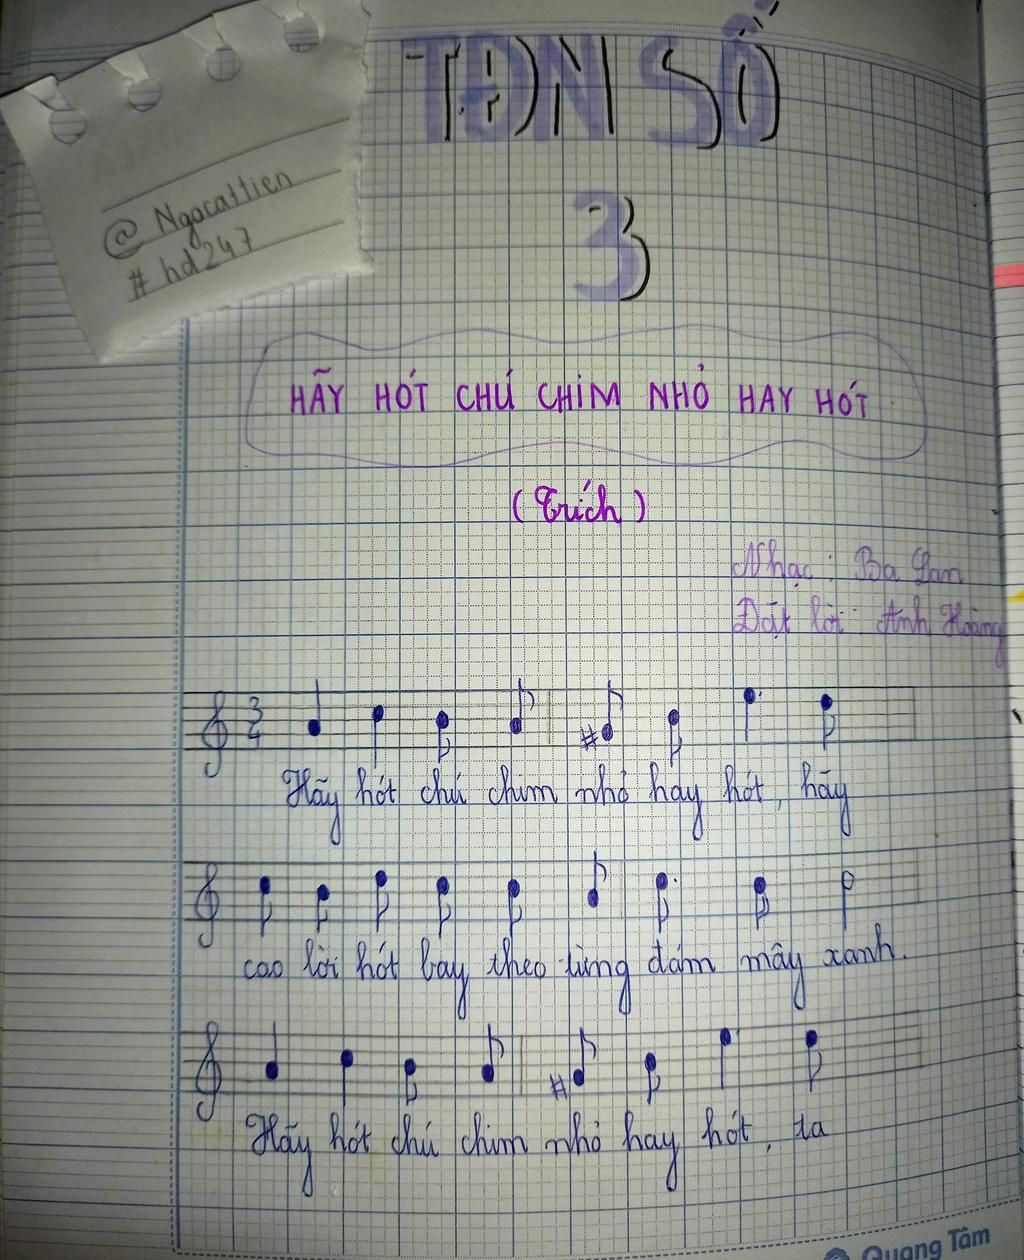 TĐN SỐ
3
@ Ngocattien
# hd247
HÃY HÓT CHÚ CHIM NHỎ HAY HÓT
(Trích)
Nhạc: Ba Lan
Đặt lời: Anh Hoàng
3
4
Hãy hót chú chim nhỏ hay hót, hãy
cao lời hót bay theo từng đám mây xanh.
Hãy hót chú chim nhỏ hay hót, ta
Quang Tâm